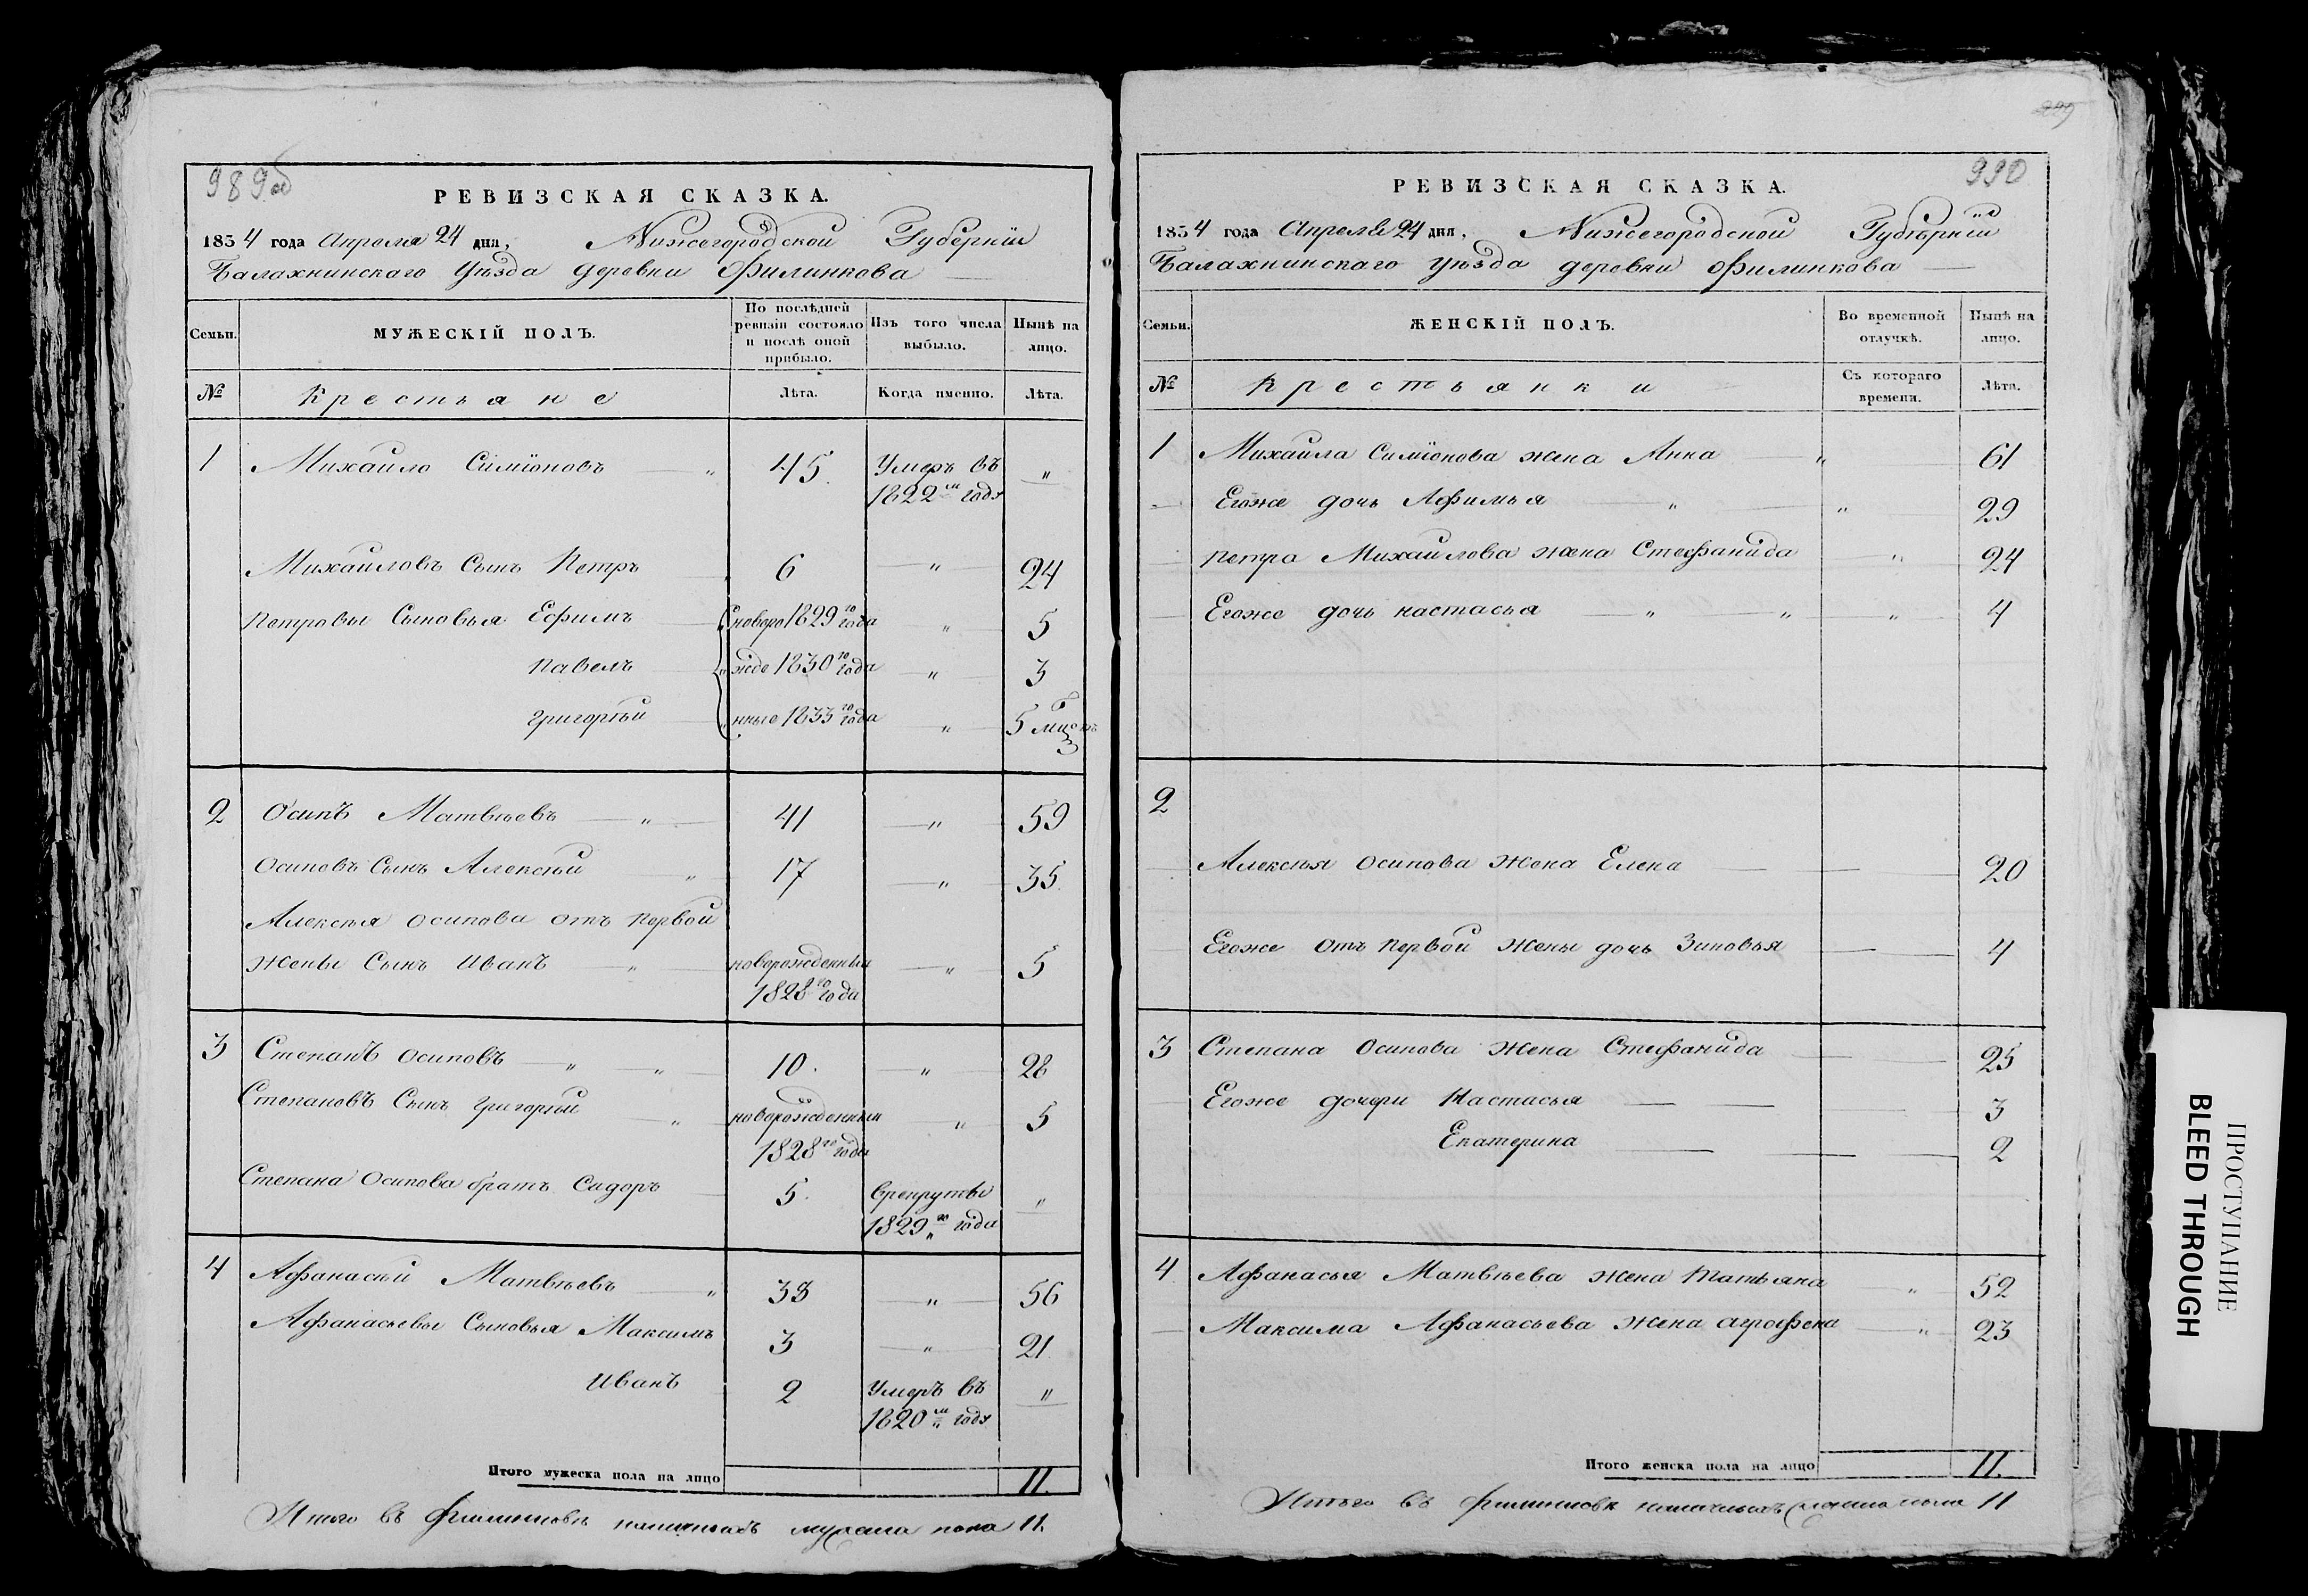 989об
РЕВИЗСКАЯ СКАЗКА.
1834 года Апреля 24 дня, Нижегородской Губернии
Балахнинскаго Уѣзда деревни Филинкова
Семьи. МУЖЕСКІЙ ПОЛЪ. По послѣдней ревизіи состояло и послѣ оной прибыло. Изъ того числа выбыло. Нынѣ на лицо.
№ Крестьяне Лѣта. Когда именно. Лѣта.
1 Михайло Симіоновъ „ 45. Умеръ въ „
1822м году
Михайловъ Сынъ Петръ 6 „ 24
Петровы Сыновья Ефимъ Новоро 1829го года „ 5
Павелъ жде 1830го года „ 3
Григорьй нные 1833го года „ 5 мцовъ
2 Осипъ Матвѣевъ „ 41 „ 59
Осиповъ Сынъ Алексѣй „ 17 „ 35.
Алексѣя Осипова отъ первой
жены Сынъ Иванъ „ новорожденный „ 5
1828го года
3 Степанъ Осиповъ „ „ 10. „ 28
Степановъ Сынъ Григорьй „ новорожденный „ 5
1828го года
Степана Осипова братъ Сидоръ 5. Врекруты „
1829го года
4 Афанасьй Матвѣевъ „ 38 „ 56
Афанасьевы Сыновья Максимъ 3 „ 21.
Иванъ 2 Умеръ въ „
1820м году
Итого мужеска пола на лицо 11.
Итого въ Филинковѣ наличныхъ мужеска пола 11.
990
РЕВИЗСКАЯ СКАЗКА.
1834 года Апреля 24 дня, Нижегородской Губѣрніи
Балахнинскаго уѣзда деревни Филинкова
Семьи. ЖЕНСКІЙ ПОЛЪ. Во временной отлучкѣ. Нынѣ на лицо.
№ Крестьянки Съ котораго времени. Лѣта.
1 Михайла Симіонова жена Анна „ 61
Егоже дочь Афимья „ „ 29
Петра Михайлова жена Стефанида „ 24
Егоже дочь настасья „ „ „ 4
2
Алексѣя Осипова жена Елена 20
Егоже отъ первой жены дочь Зиновья 4
3 Степана Осипова жена Стефанида 25
Егоже дочери Настасья 3
Екатерина 2
4 Афанасья Матвѣева жена Татьяна „ 52
Максима Афанасьева жена агрофена „ 23
Итого женска пола на лицо 11.
Итого въ Филинковѣ наличныхъ женска пола 11
ПРОСТУПАНИЕ
BLEED THROUGH